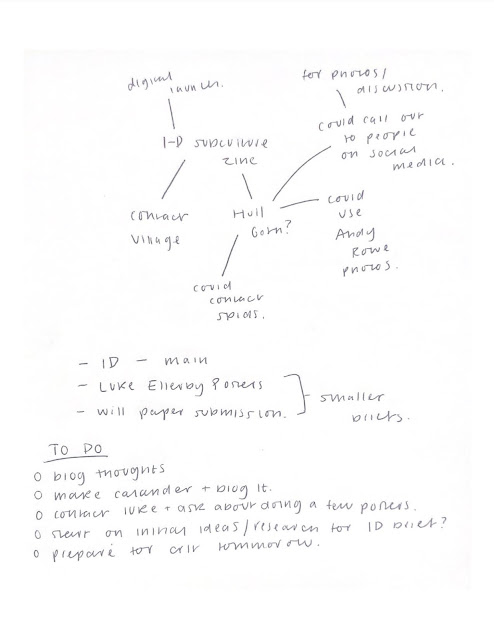 digital
launch.
for photos/
discussion.
I-D subculture
zine
could call out
to people
on social
media.
contact
village
Hull
Goth?
could
use
Andy
Rowe
photos.
could
contact
spiders.
- ID - main
- Luke Ellerby Posters
- Will paper submission.
smaller
briefs.
TO DO
o blog thoughts
o make calander + blog it.
o contact luke + ask about doing a few posters.
o start on initial ideas/research for ID brief?
o prepare for crit tommorow.